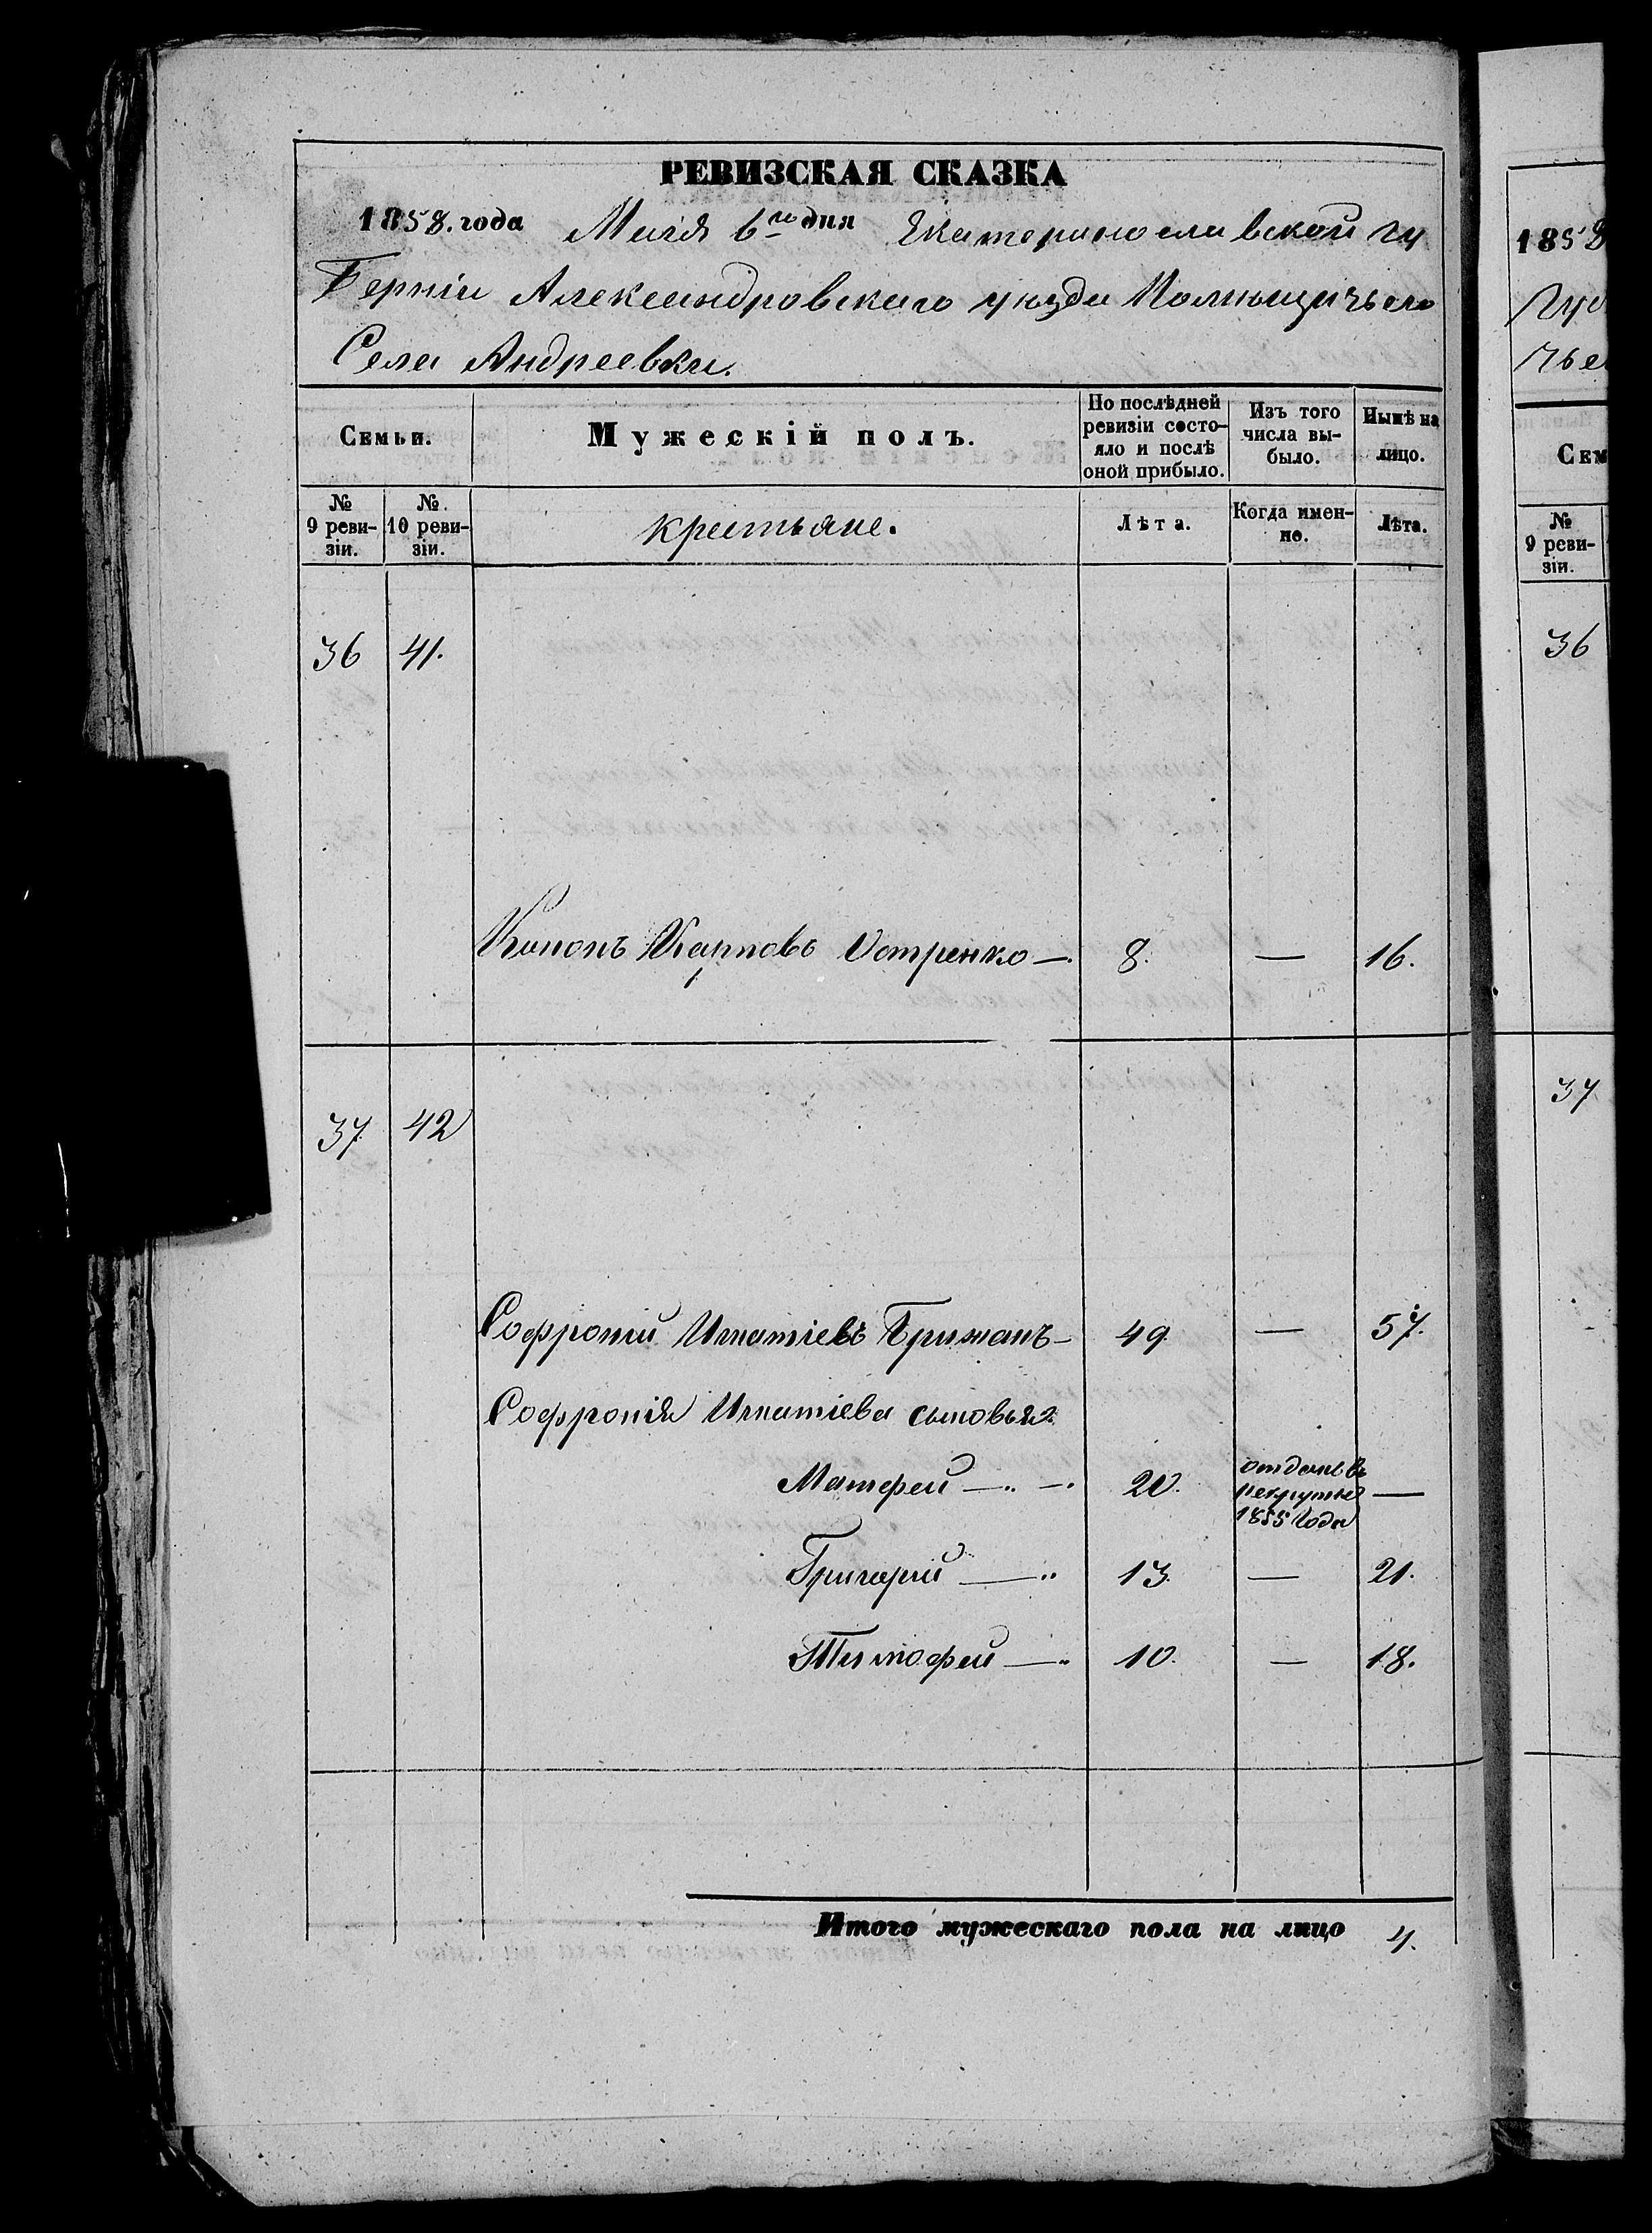 РЕВИЗСКАЯ СКАЗКА
1858. года Маія 6го дня Екатеринославской гу
Берніи Александровскаго уѣзда Помѣщичьяго
Села Андреевки.
Семьи.
Мужескій полъ.
По послѣдней ревизіи состояло и послѣ оной прибыло.
Изъ того числа выбыло.
Нынѣ на лицо.
№ 9 ревизіи.
№ 10 ревизіи.
крестьяне.
Лѣта.
Когда именно.
Лѣта.
36 41.
Кононъ Карповъ Остренко —. 8. — 16.
37. 42
Софроній Игнатіевъ Брижанъ — 49. — 57.
Софронія Игнатіева сыновья:
Матфей — 20. отданъ въ рекруты 1855 Года —
Григорій — 13. — 21.
Тимофей — 10. — 18.
Итого мужескаго пола на лицо 4.
1858
Гус
чье
Сем
№
9 реви-
зіи.
36
37